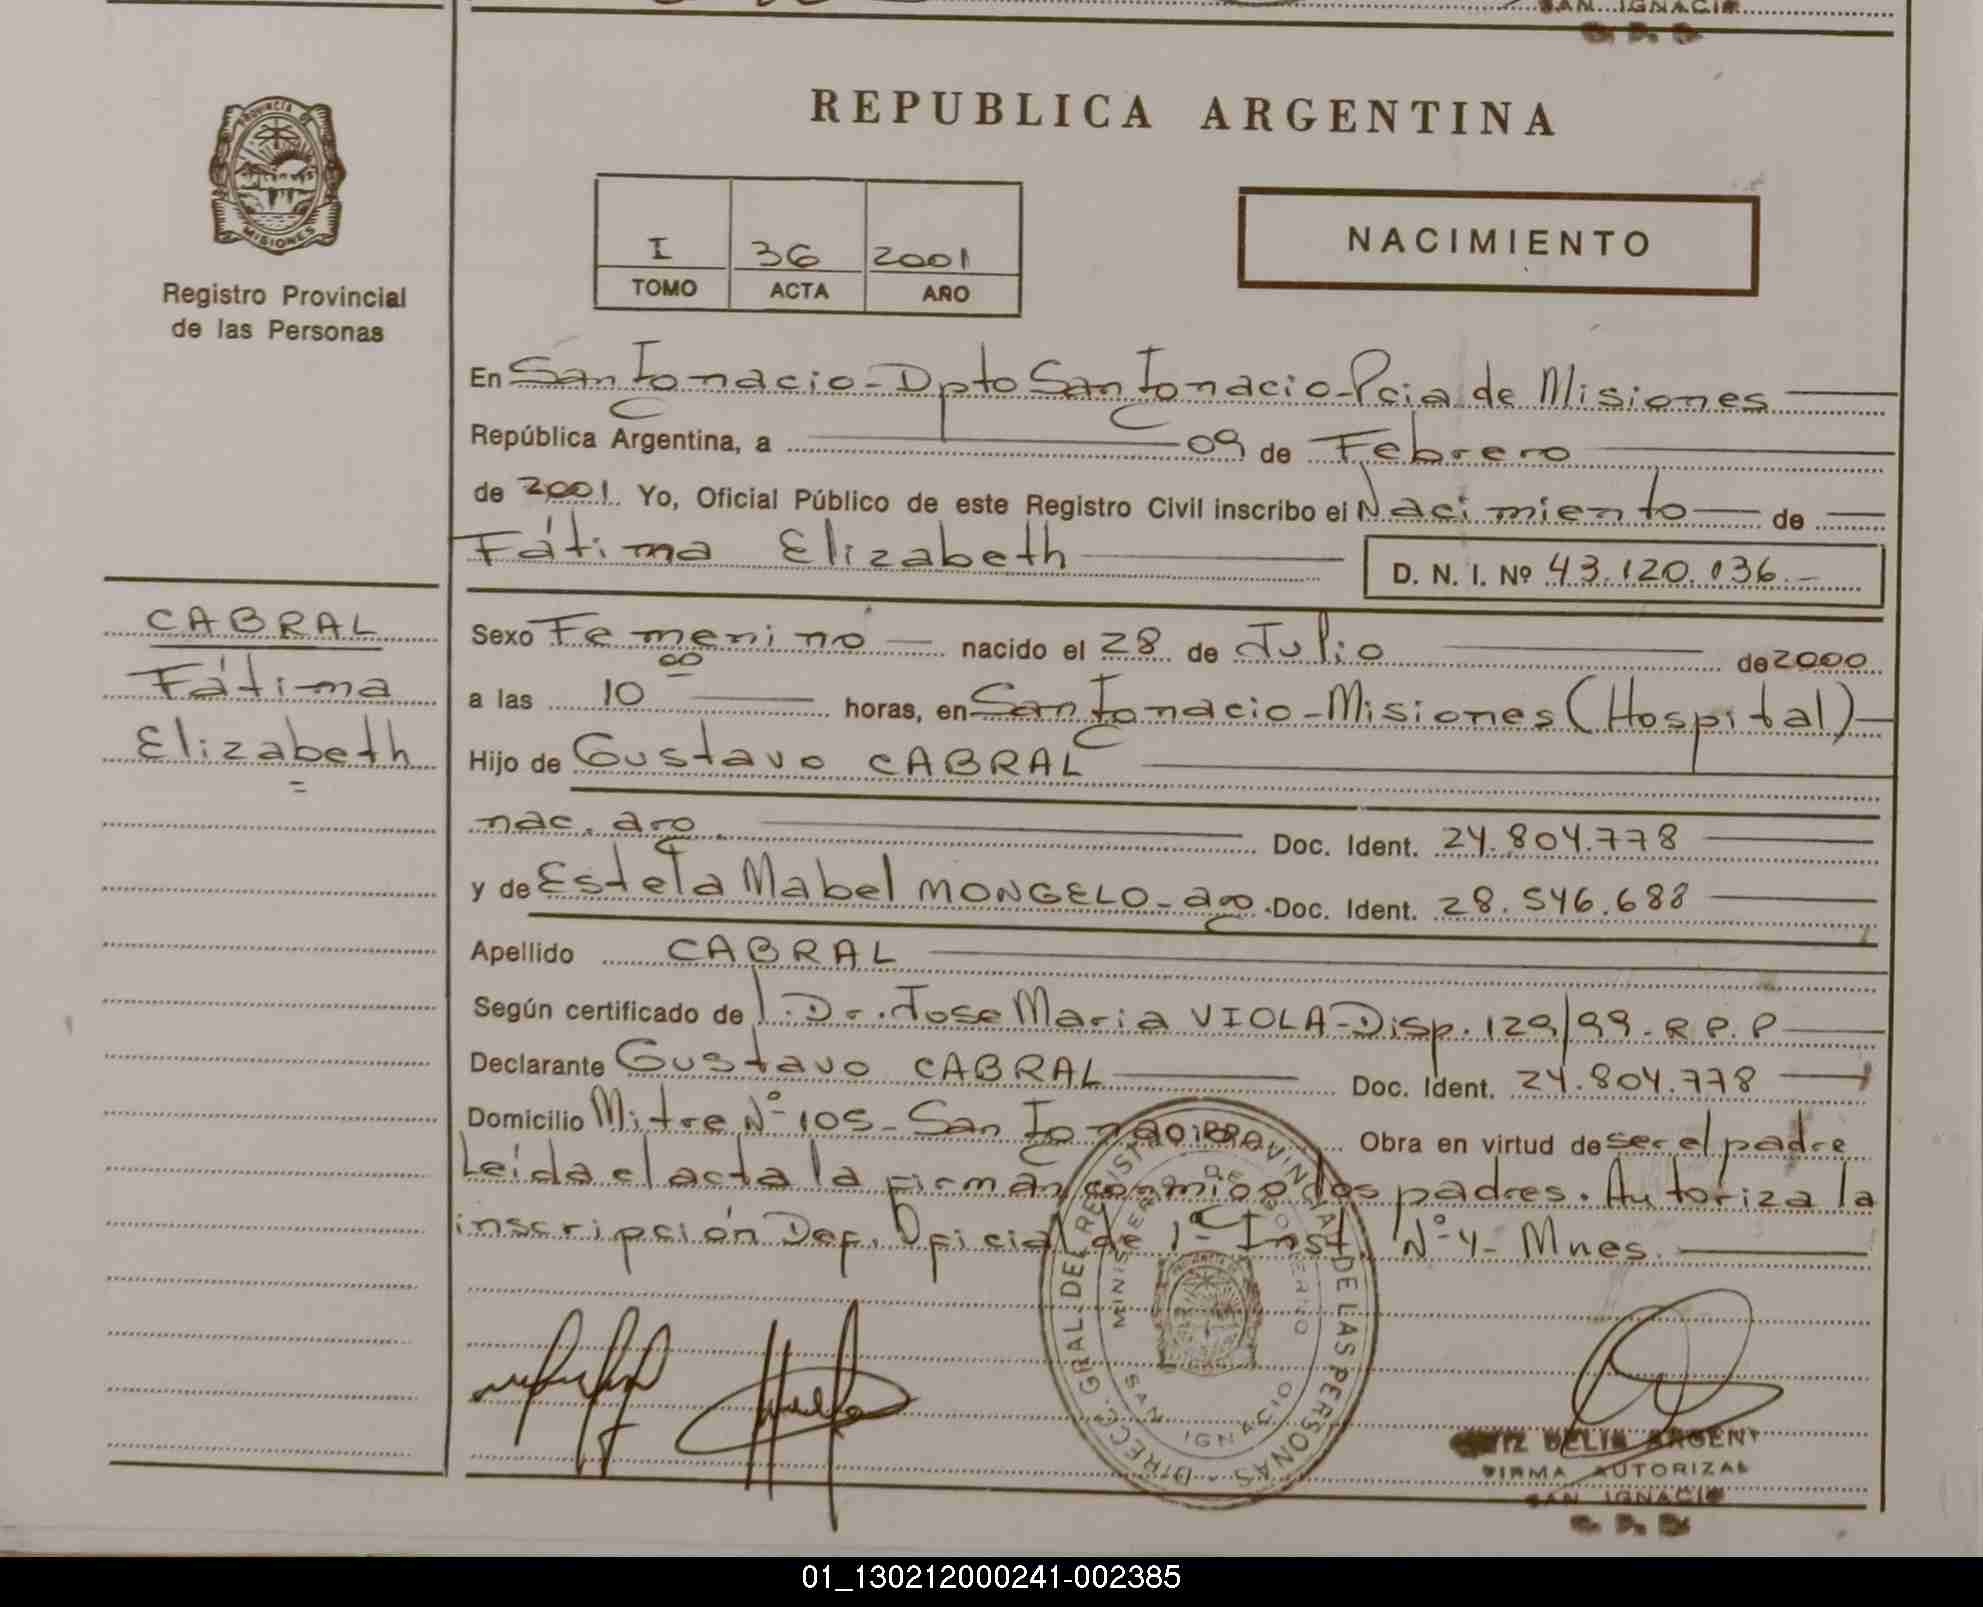 SAN IGNACIO
REPUBLICA ARGENTINA
PROVINCIA DE
MISIONES
Registro Provincial
de las Personas
I 36 2001
TOMO ACTA AÑO
NACIMIENTO
En San Ignacio - Dpto San Ignacio - Pcia de Misiones
República Argentina, a 09 de Febrero
de 2001 Yo, Oficial Público de este Registro Civil inscribo el Nacimiento de
Fátima Elizabeth D. N. I. Nº 43.120.136.-
CABRAL
Fátima
Elizabeth
Sexo Femenino nacido el 28 de Julio de 2000
a las 10 00 horas, en San Ignacio - Misiones (Hospital)
Hijo de Gustavo CABRAL
nac. arg. Doc. Ident. 24.804.778
y de Estela Mabel MONGELO - arg. Doc. Ident. 28.546.688
Apellido CABRAL
Según certificado de l. Dr. Jose Maria VIOLA - Disp. 129/99 - R.P.P
Declarante Gustavo CABRAL Doc. Ident. 24.804.778
Domicilio Mitre Nº 105 - San Ignacio Obra en virtud de ser el padre
Leída el acta la firman conmigo los padres. Autoriza la
inscripción Def. Oficial de 1º Inst. Nº 4 - Mnes.
DIRECC. GRAL. DEL REGISTRO PROVINCIAL DE LAS PERSONAS
MINISTERIO DE GOBIERNO
SAN IGNACIO
DELIA ARGENT
FIRMA AUTORIZAD
SAN IGNACIO
01_130212000241-002385